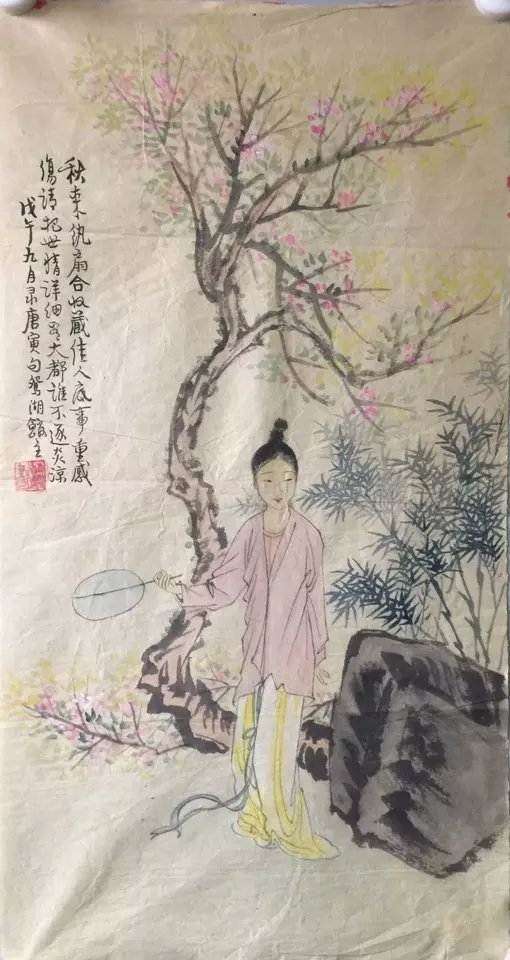 秋来紈扇合收藏佳人底事重感
傷请把世情詳细看大都誰不逐炎凉
戊午九月录唐寅句鴛湖主